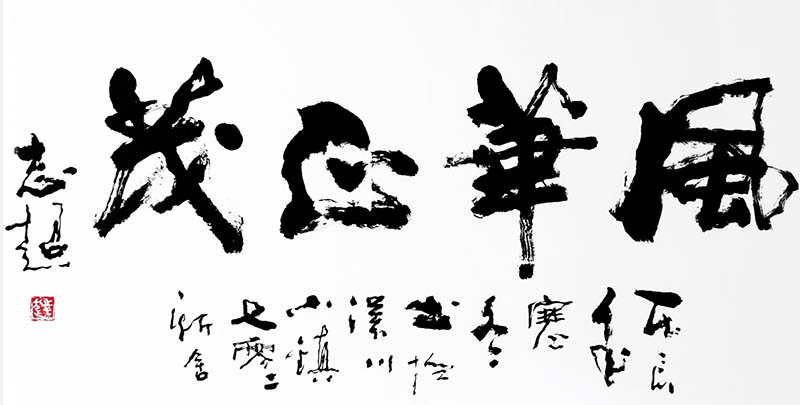 風華正茂
寒
冬
書於
川
小鎮
七零二
新舍
志超